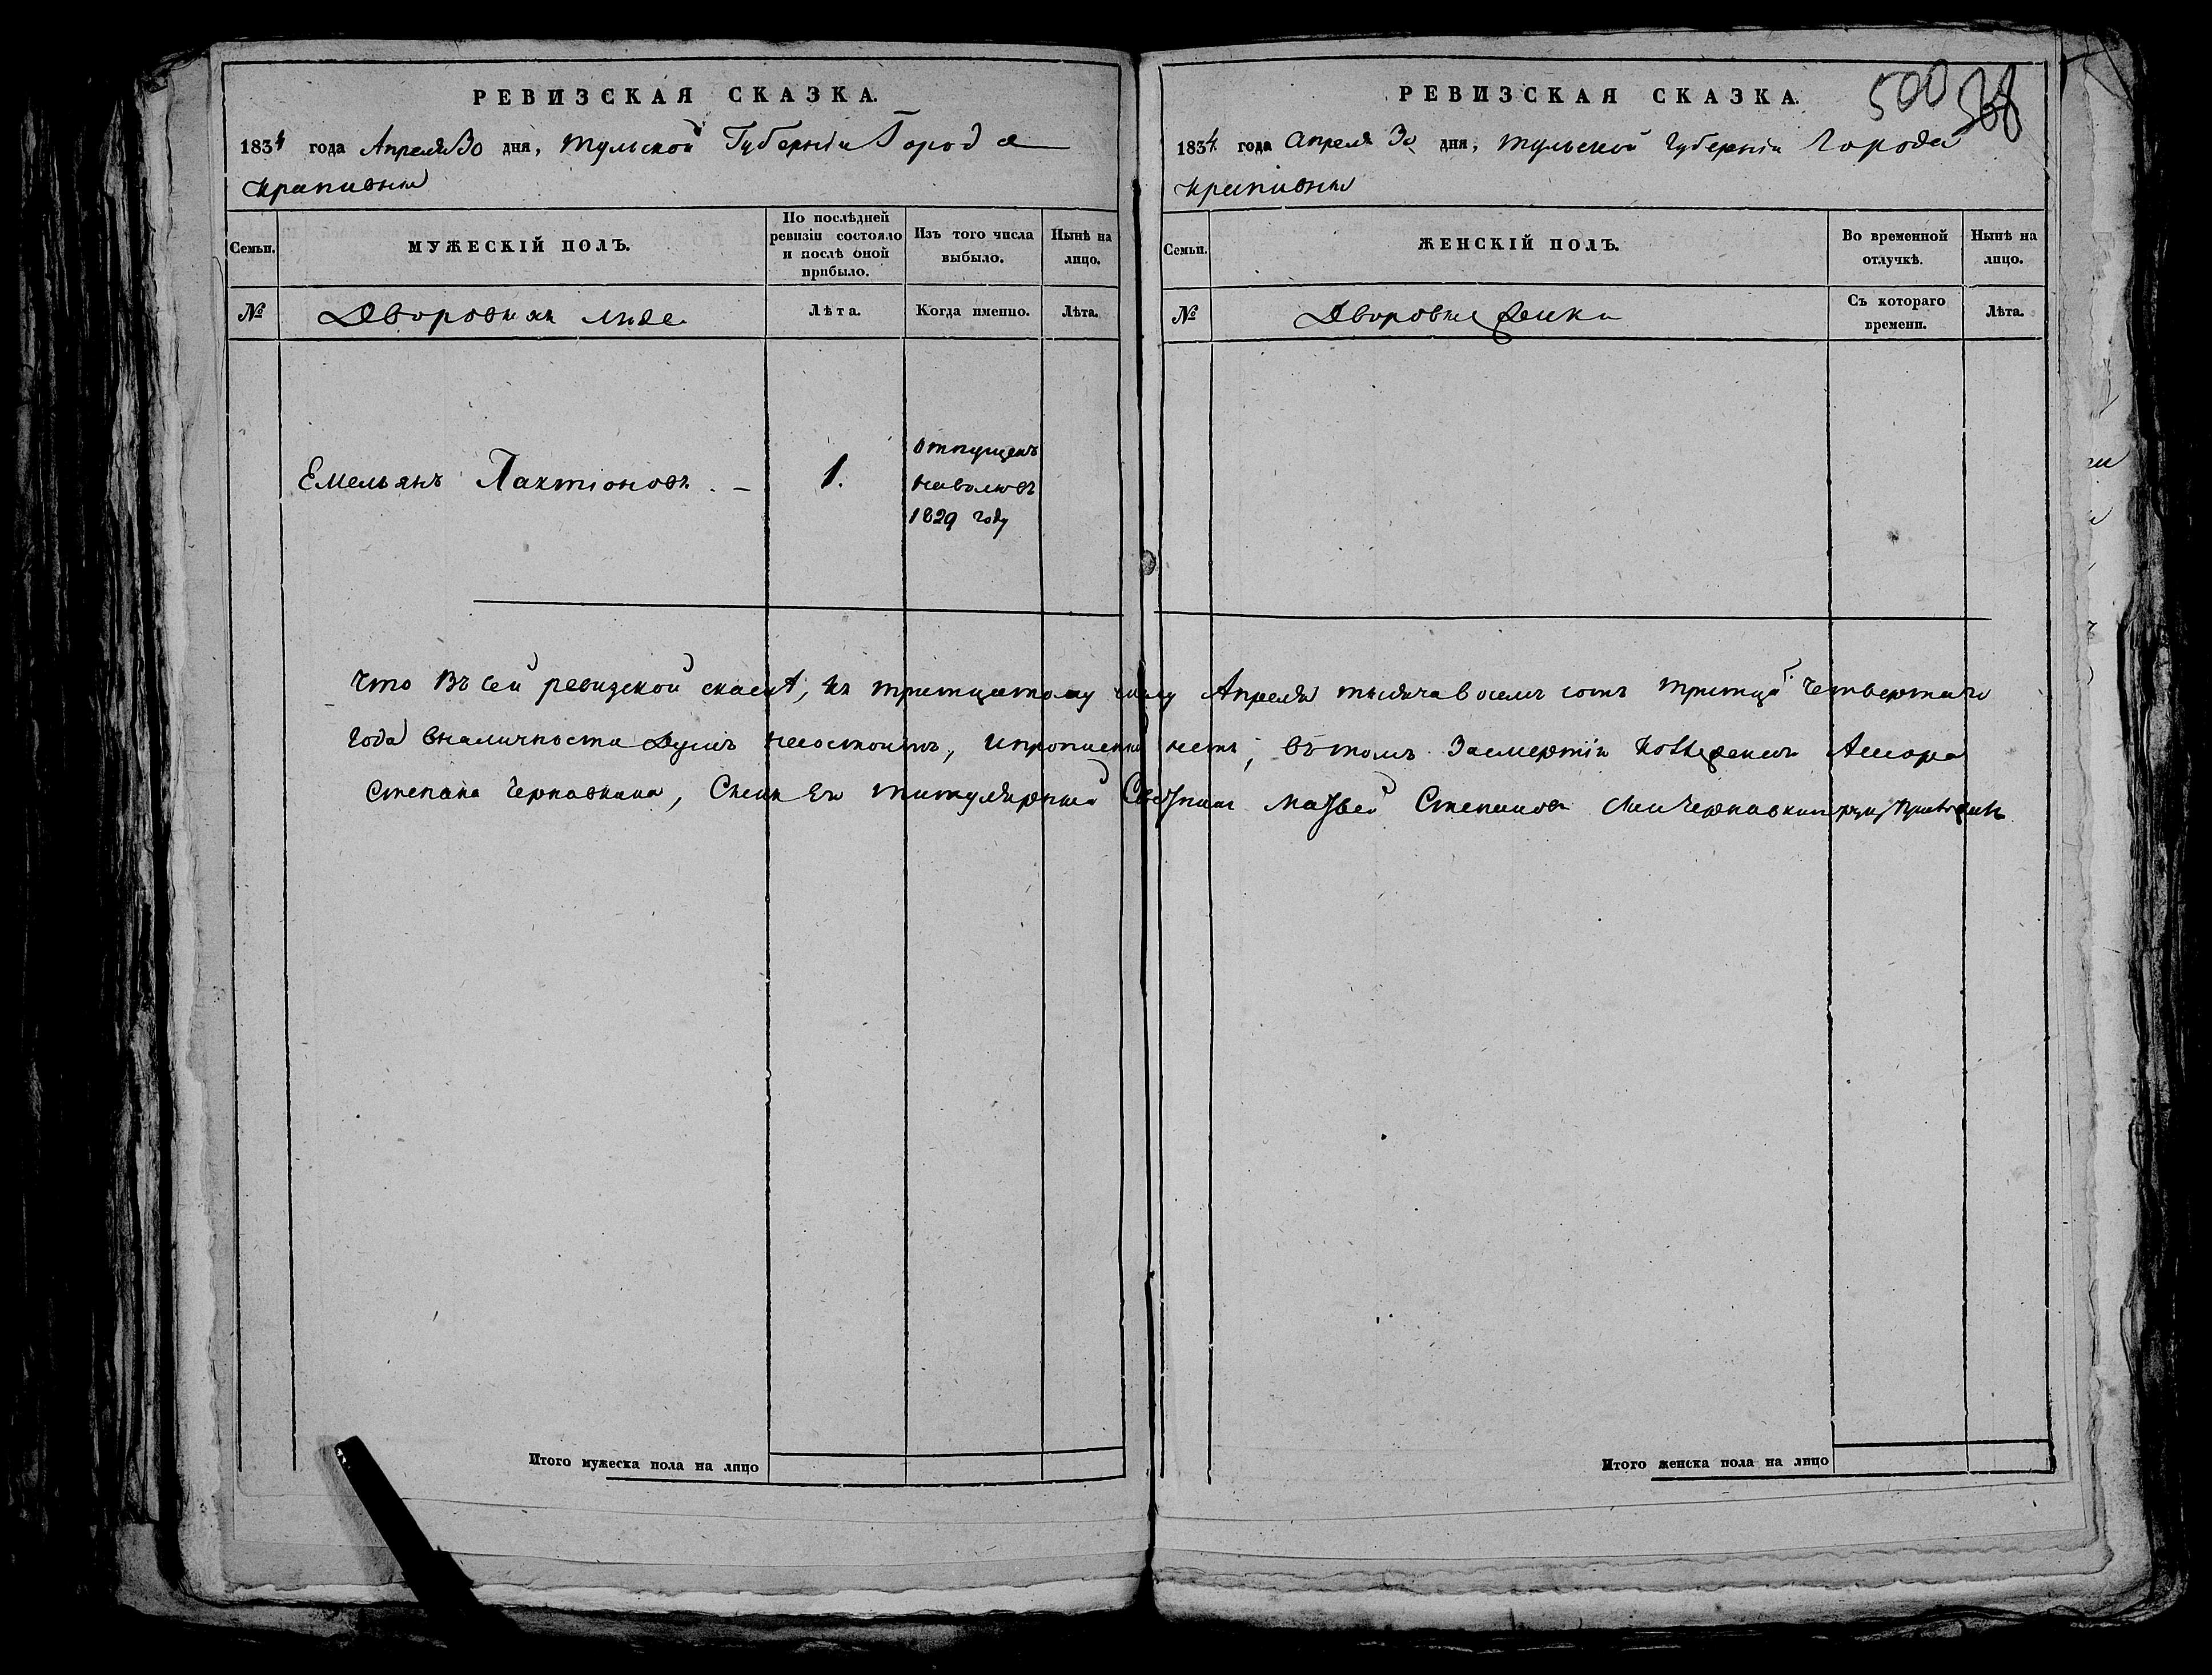 РЕВИЗСКАЯ СКАЗКА.
1834 года Апреля 30 дня, Тульской Губерніи Города
Крапивны
Семьи.
МУЖЕСКІЙ ПОЛЪ.
По послѣдней ревизіи состояло и послѣ оной прибыло.
Изъ того числа выбыло.
Нынѣ на лицо.
№
Дворовыхъ люде
Лѣта.
Когда именно.
Лѣта.
Емельянъ Лактіоновъ. —
1.
отпущенъ
наволювъ
1829 году
Итого мужеска пола на лицо
500
РЕВИЗСКАЯ СКАЗКА.
1834 года Апреля 30 дня, Тульской Губерніи Города
Крапивны
Семьи.
ЖЕНСКІЙ ПОЛЪ.
Во временной отлучкѣ.
Нынѣ на лицо.
№
Дворовые
Съ котораго времени.
Лѣта.
Что въ сей ревизской скаскѣ, къ тритцатому числу Апреля тысяча восемь сотъ тритцать четвертаго
Года вналичности душъ несостоитъ, и нетъ, вътомъ
Степана Чернавкина, Сынъ Ево титулярный Советникъ Матвей Степановъ Сынъ Чернавкинъ руку приложилъ
Итого женска пола на лицо